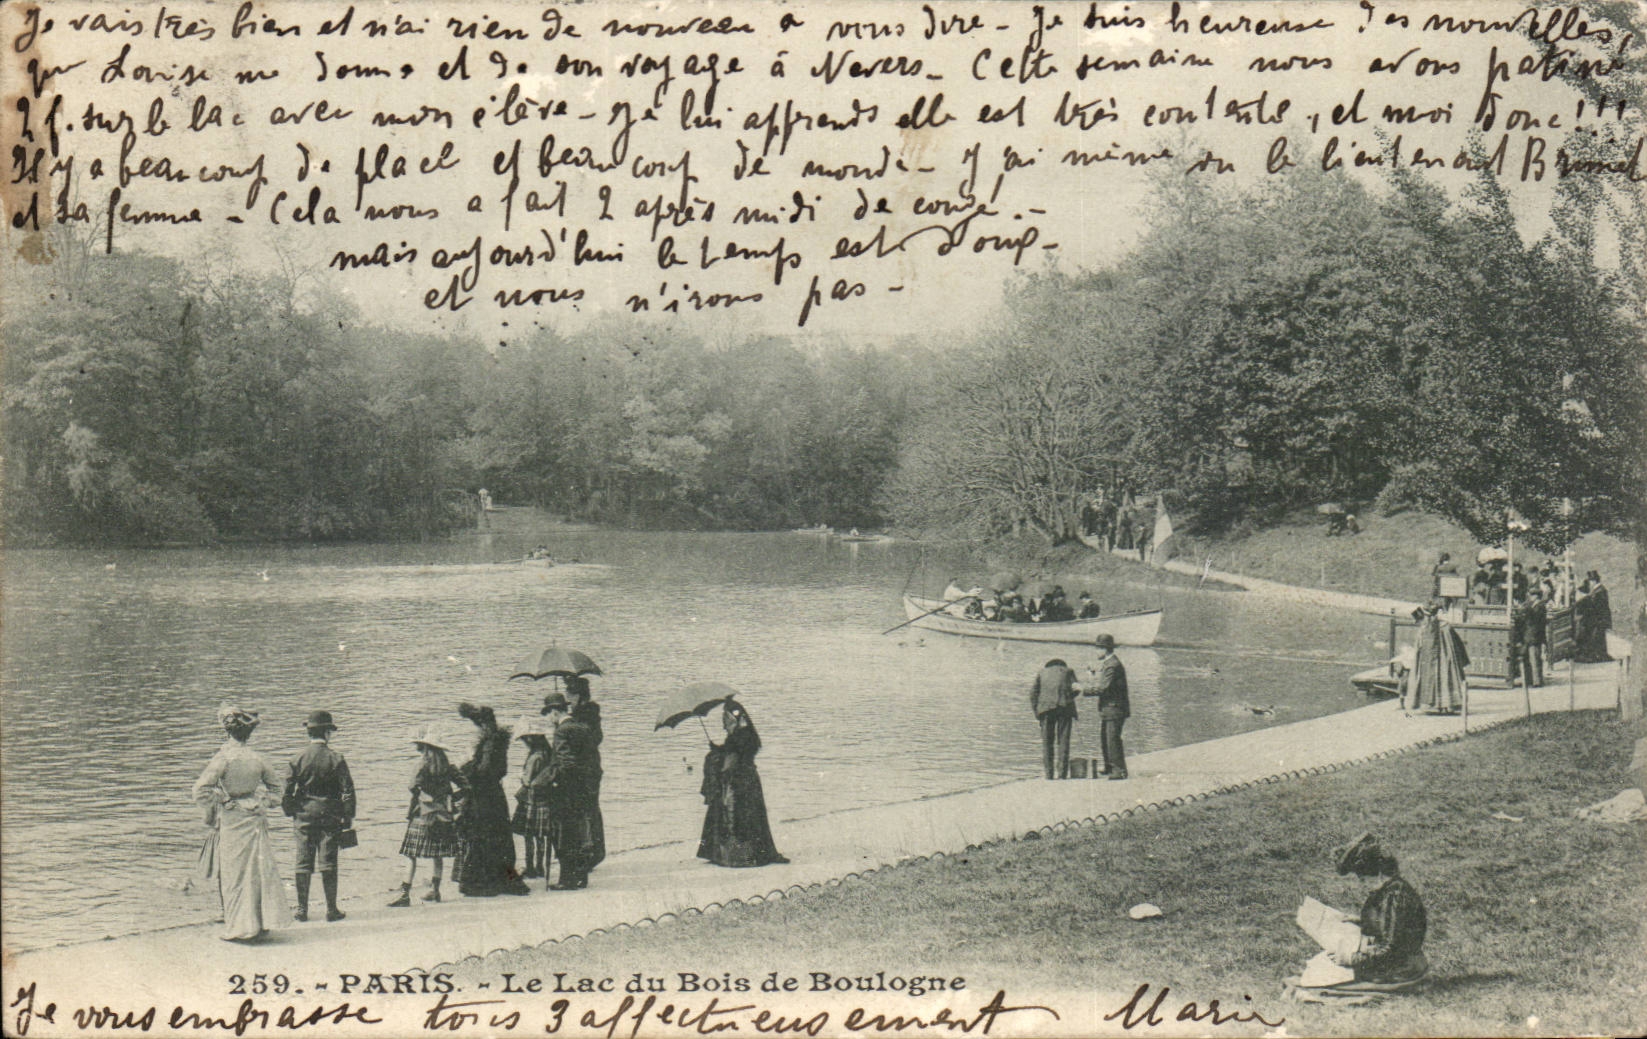 Je vais très bien et n'ai rien de nouveau a vous dire - Je suis heureuse des nouvelles,
que Louise me donne et de son voyage à Nevers - Cette semaine nous avons patiné
2 f. sur le lac avec mon élève - Je lui apprends elle est très contente, et moi donc!!!
Il y a beaucoup de place et beaucoup de monde - J'ai même vu le lieutenant
et sa femme - Cela nous a fait 2 après midi de congé. -
mais aujourd'hui le temps est doux -
et nous n'irons pas -
259. - PARIS. - Le Lac du Bois de Boulogne
Je vous embrasse tous 3 affectueusement Marie